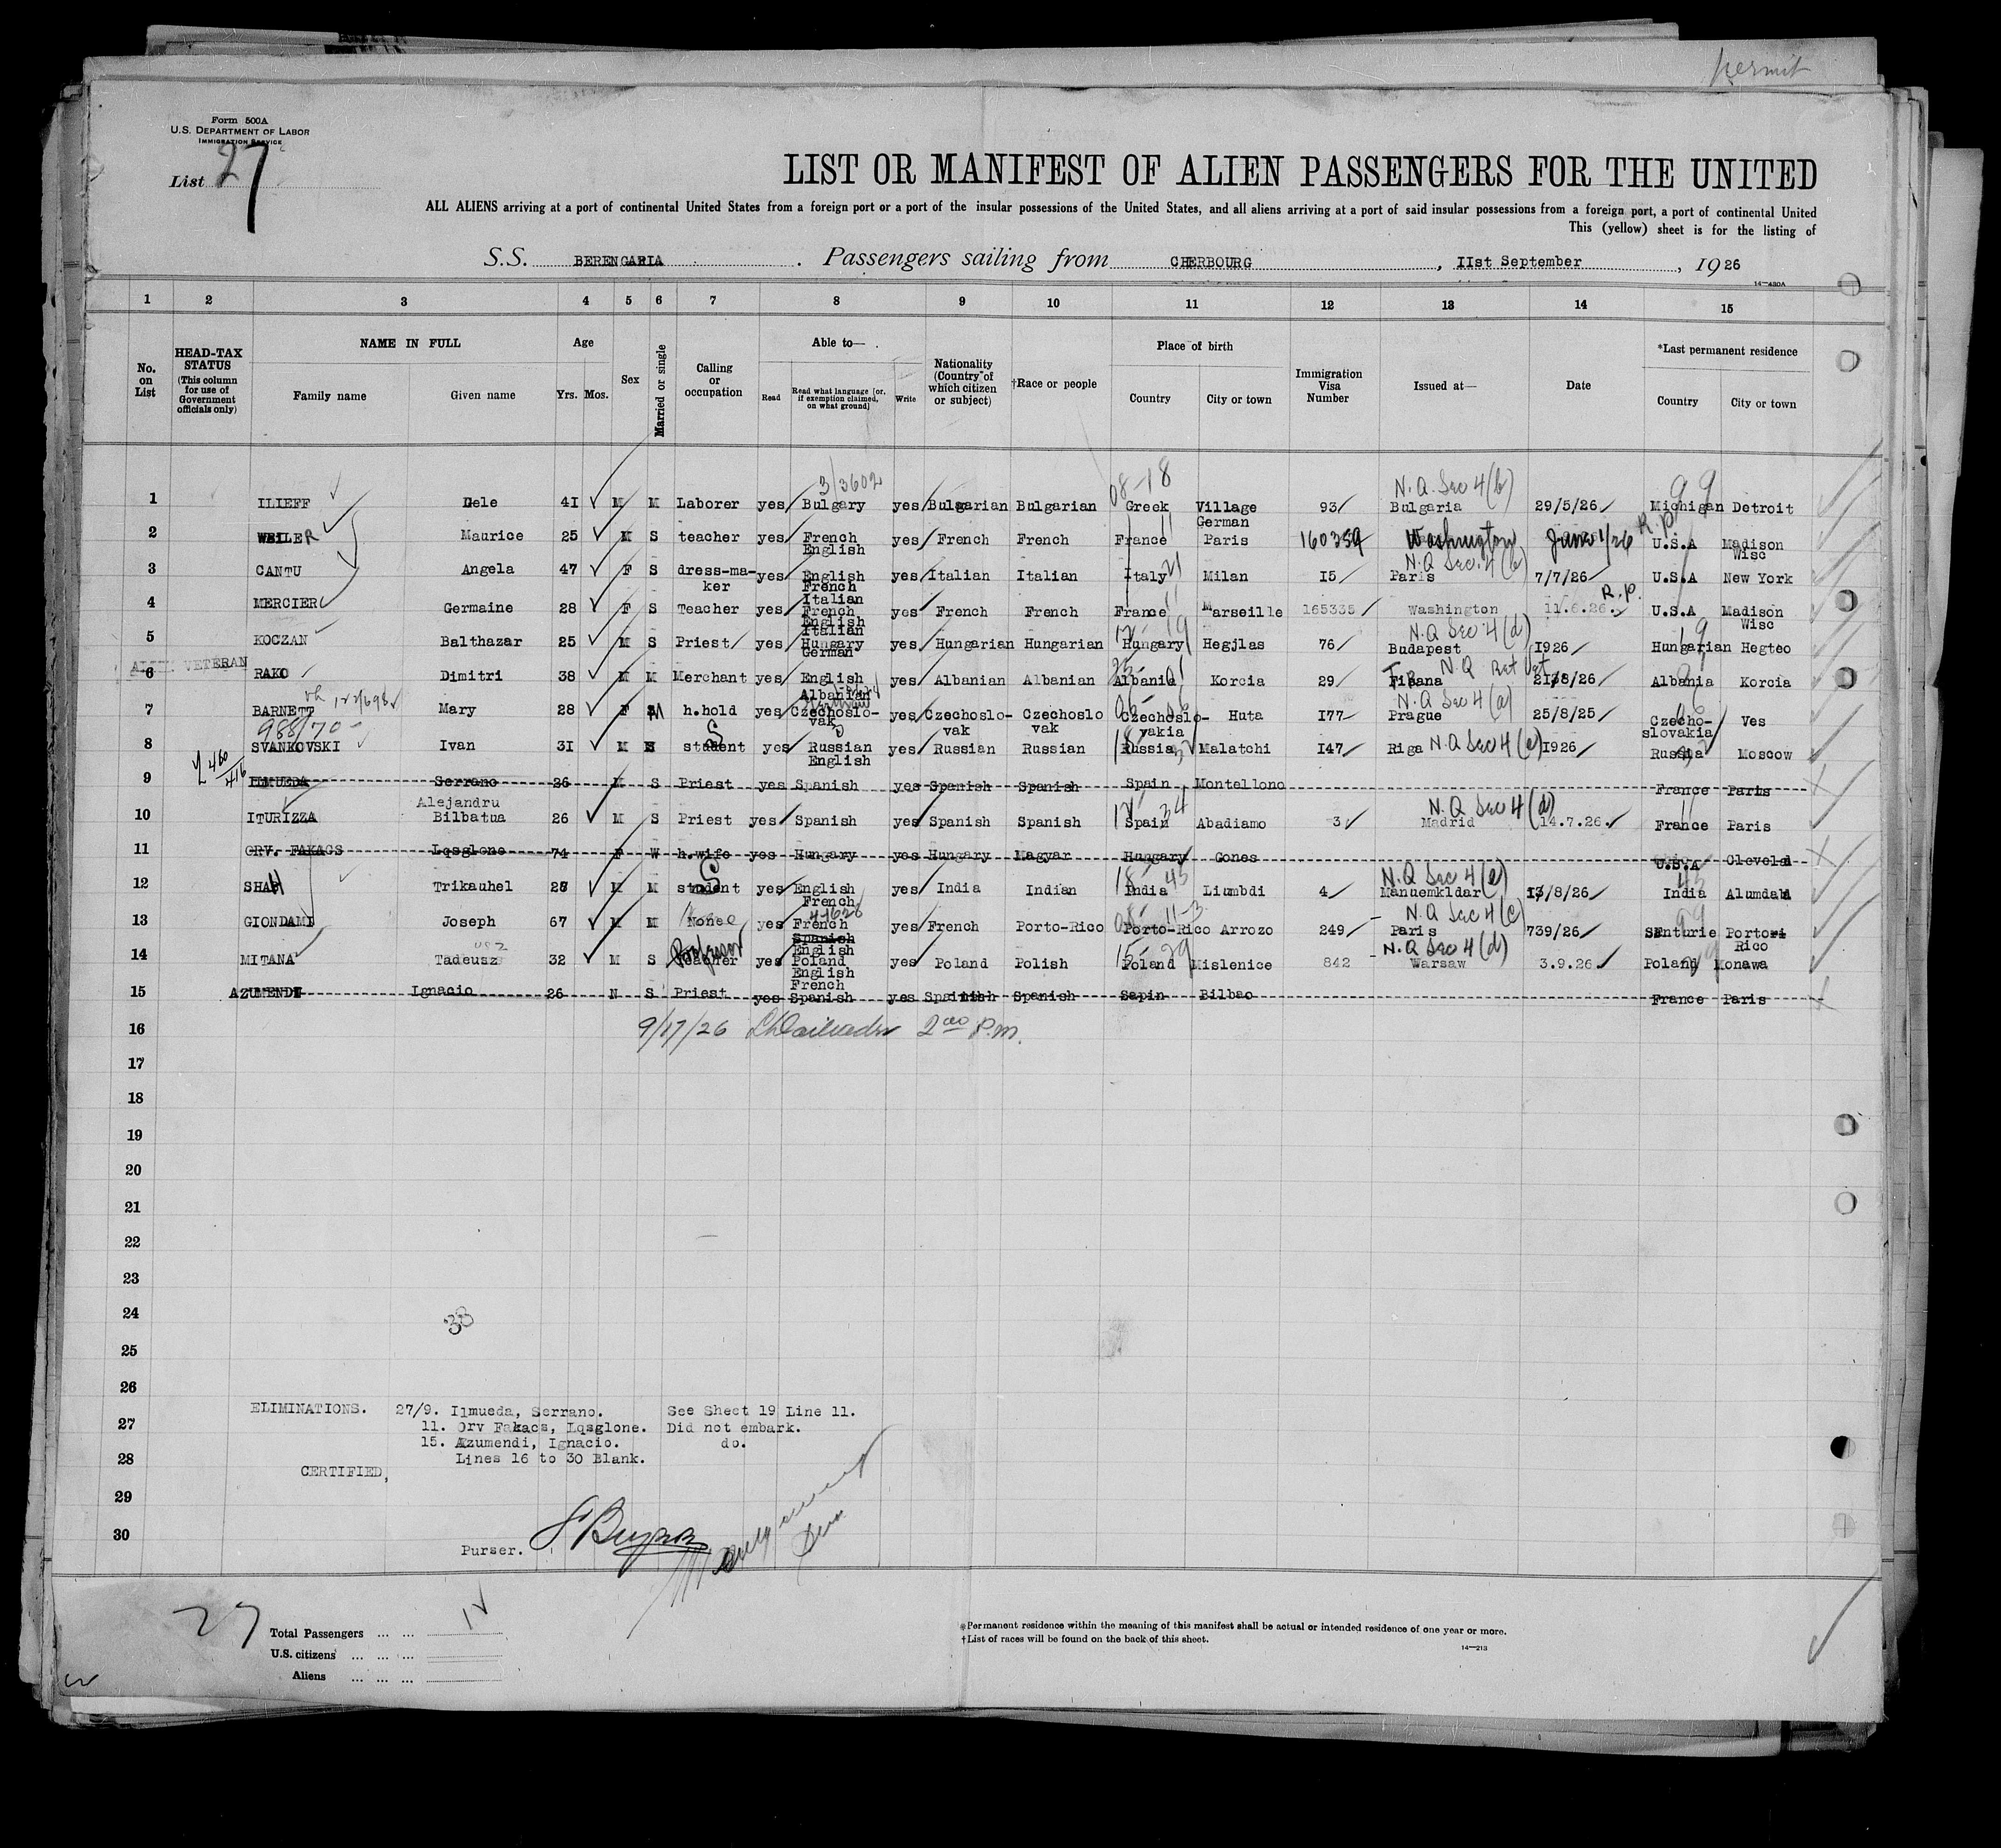 permit
Form 500A
U.S. DEPARTMENT OF LABOR
IMMIGRATION SERVICE
List 27
LIST OR MANIFEST OF ALIEN PASSENGERS FOR THE UNITED
ALL ALIENS arriving at a port of continental United States from a foreign port or a port of the insular possessions of the United States, and all aliens arriving at a port of said insular possessions from a foreign port, a port of continental United
This (yellow) sheet is for the listing of
S.S. BERENGARIA. Passengers sailing from CHERBOURG, IIst September, 1926
14—430A
1 2 3 4 5 6 7 8 9 10 11 12 13 14 15
No. on List HEAD-TAX STATUS (This column for use of Government officials only) NAME IN FULL Family name Given name Age Yrs. Mos. Sex Married or single Calling or occupation Able to— Read Read what language [or, if exemption claimed, on what ground] Write Nationality (Country of which citizen or subject) †Race or people Place of birth Country City or town Immigration Visa Number Issued at— Date *Last permanent residence Country City or town
3/3602 08-18 N.Q. Sec 4(b) 99
1 ILIEFF Dele 4I M M Laborer yes Bulgary yes Bulgarian Bulgarian Greek Village 93 Bulgaria 29/5/26 Michigan Detroit
German
2 WEILER Maurice 25 M S teacher yes French yes French French France Paris 160359 Washington June 1/26 R.P. U.S.A Madison
English Wisc
N.Q Sec. 4(b)
3 CANTU Angela 47 F S dress-ma- yes English yes Italian Italian Italy Milan I5 Paris 7/7/26 U.S.A New York
ker French
Italian R.P.
4 MERCIER Germaine 28 F S Teacher yes French yes French French France Marseille 165335 Washington 11.6.26. U.S.A Madison
English Wisc
Italian N.Q Sec 4(d) 19
5 KOCZAN Balthazar 25 M S Priest yes Hungary yes Hungarian Hungarian Hungary Hegjlas 76 Budapest I926 Hungarian Hegteo
German
ALIEN VETERAN N.Q Ret Vet
6 RAKO Dimitri 38 M M Merchant yes English yes Albanian Albanian Albania Korcia 29 Tirana 2I/8/26 Albania Korcia
Albanian N.Q Sec 4(a)
7 BARNETT Mary 28 F M h.hold yes Czechoslo- yes Czechoslo- Czechoslo Czechoslo- Huta I77 Prague 25/8/25 Czecho- Ves
988/70 vak vak vak vakia slovakia
8 SVANKOVSKI Ivan 3I M S student yes Russian yes Russian Russian Russia Malatchi I47 Riga N.Q Sec 4(e) I926 Russia Moscow
English
9 ILMUEDA Serrano 26 M S Priest yes Spanish yes Spanish Spanish Spain Montellono France Paris
Alejandru N.Q Sec 4(d)
10 ITURIZZA Bilbatua 26 M S Priest yes Spanish yes Spanish Spanish Spain Abadiamo 3 Madrid 14.7.26. France Paris
11 ORV. FAKACS Lqsglone 74 F W h.wife yes Hungary yes Hungary Magyar Hungary Gones U.S.A Cleveld
N.Q Sec 4(e)
12 SHAH Trikauhel 28 M M student yes English yes India Indian India Liumbdi 4 Manuemkldar I3/8/26 India Alumdad
French
N.Q Sec 4(c)
13 GIONDAMI Joseph 67 M M None yes French yes French Porto-Rico Porto-Rico Arrozo 249 Paris 739/26 Senturie Porto
Spanish Rico
English N.Q Sec 4(d)
14 MITANA Tadeusz 32 M S Professor Teacher yes Poland yes Poland Polish Poland Mislenice 842 Warsaw 3.9.26. Poland Monawa
English
French
15 AZUMENDI Ignacio 26 M S Priest yes Spanish yes Spanish Spanish Sapin Bilbao France Paris
16 9/17/26 2 00 P.M.
17
18
19
20
21
22
23
24
38
25
26
27
28
29
30
ELIMINATIONS. 27/9. Ilmueda, Serrano. See Sheet 19 Line 11.
11. Orv Fakacs, Lqsglone. Did not embark.
15. Azumendi, Ignacio. do.
Lines 16 to 30 Blank.
CERTIFIED,
Purser.
27
Total Passengers ... ... 12
U.S. citizens ... ... ...
Aliens ... ... ...
*Permanent residence within the meaning of this manifest shall be actual or intended residence of one year or more.
†List of races will be found on the back of this sheet.
14—213